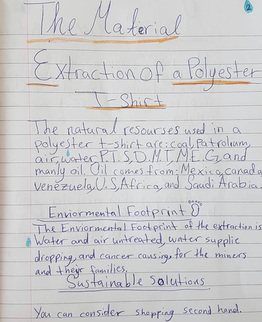 2
The Material
Extraction of a Polyester
T-Shirt
The natural resourses used in a
polyester t-shirt are: coal, Patrolium,
air, water, P.T.S, D.M.T, M.E.G, and
manly oil. Oil comes from: Mexico, canada,
venezuela, U.S, Africa, and Saudi Arabia.
Enviormental Footprint
The Enviormental Footprint of the extraction is
Water and air untreated, water supplie
dropping, and cancer causing for the miners
and their families.
Sustainable Solutions
You can consider shopping second hand.